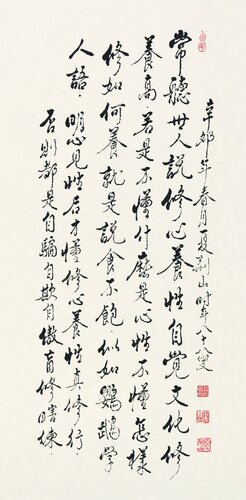 常聽世人說修心養性自覺文化修
養高若是不懂什麼是心性不懂怎樣
修如何養就是說食不飽似如鸚鵡學
人語明心見性后才懂修心養性真修行
否則都是自騙自欺自傲盲修瞎煉
辛卯年春月山時年八十八叟